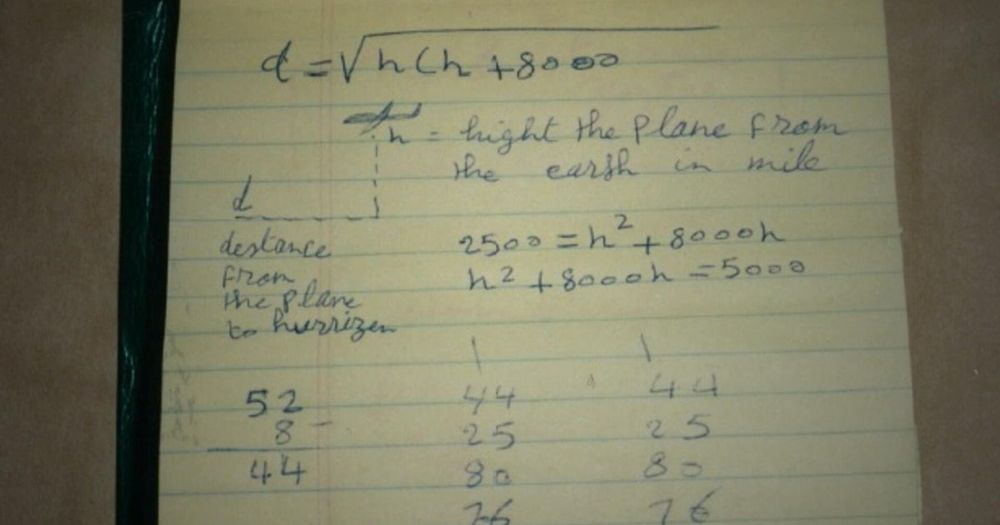 d = √h(h + 8000
h = hight the plane from
the earth in mile
d
destance
from
the plane
to hurrizen
2500 = h² + 8000h
h² + 8000h = 5000
52
8 -
44
44
25
80
76
44
25
80
76